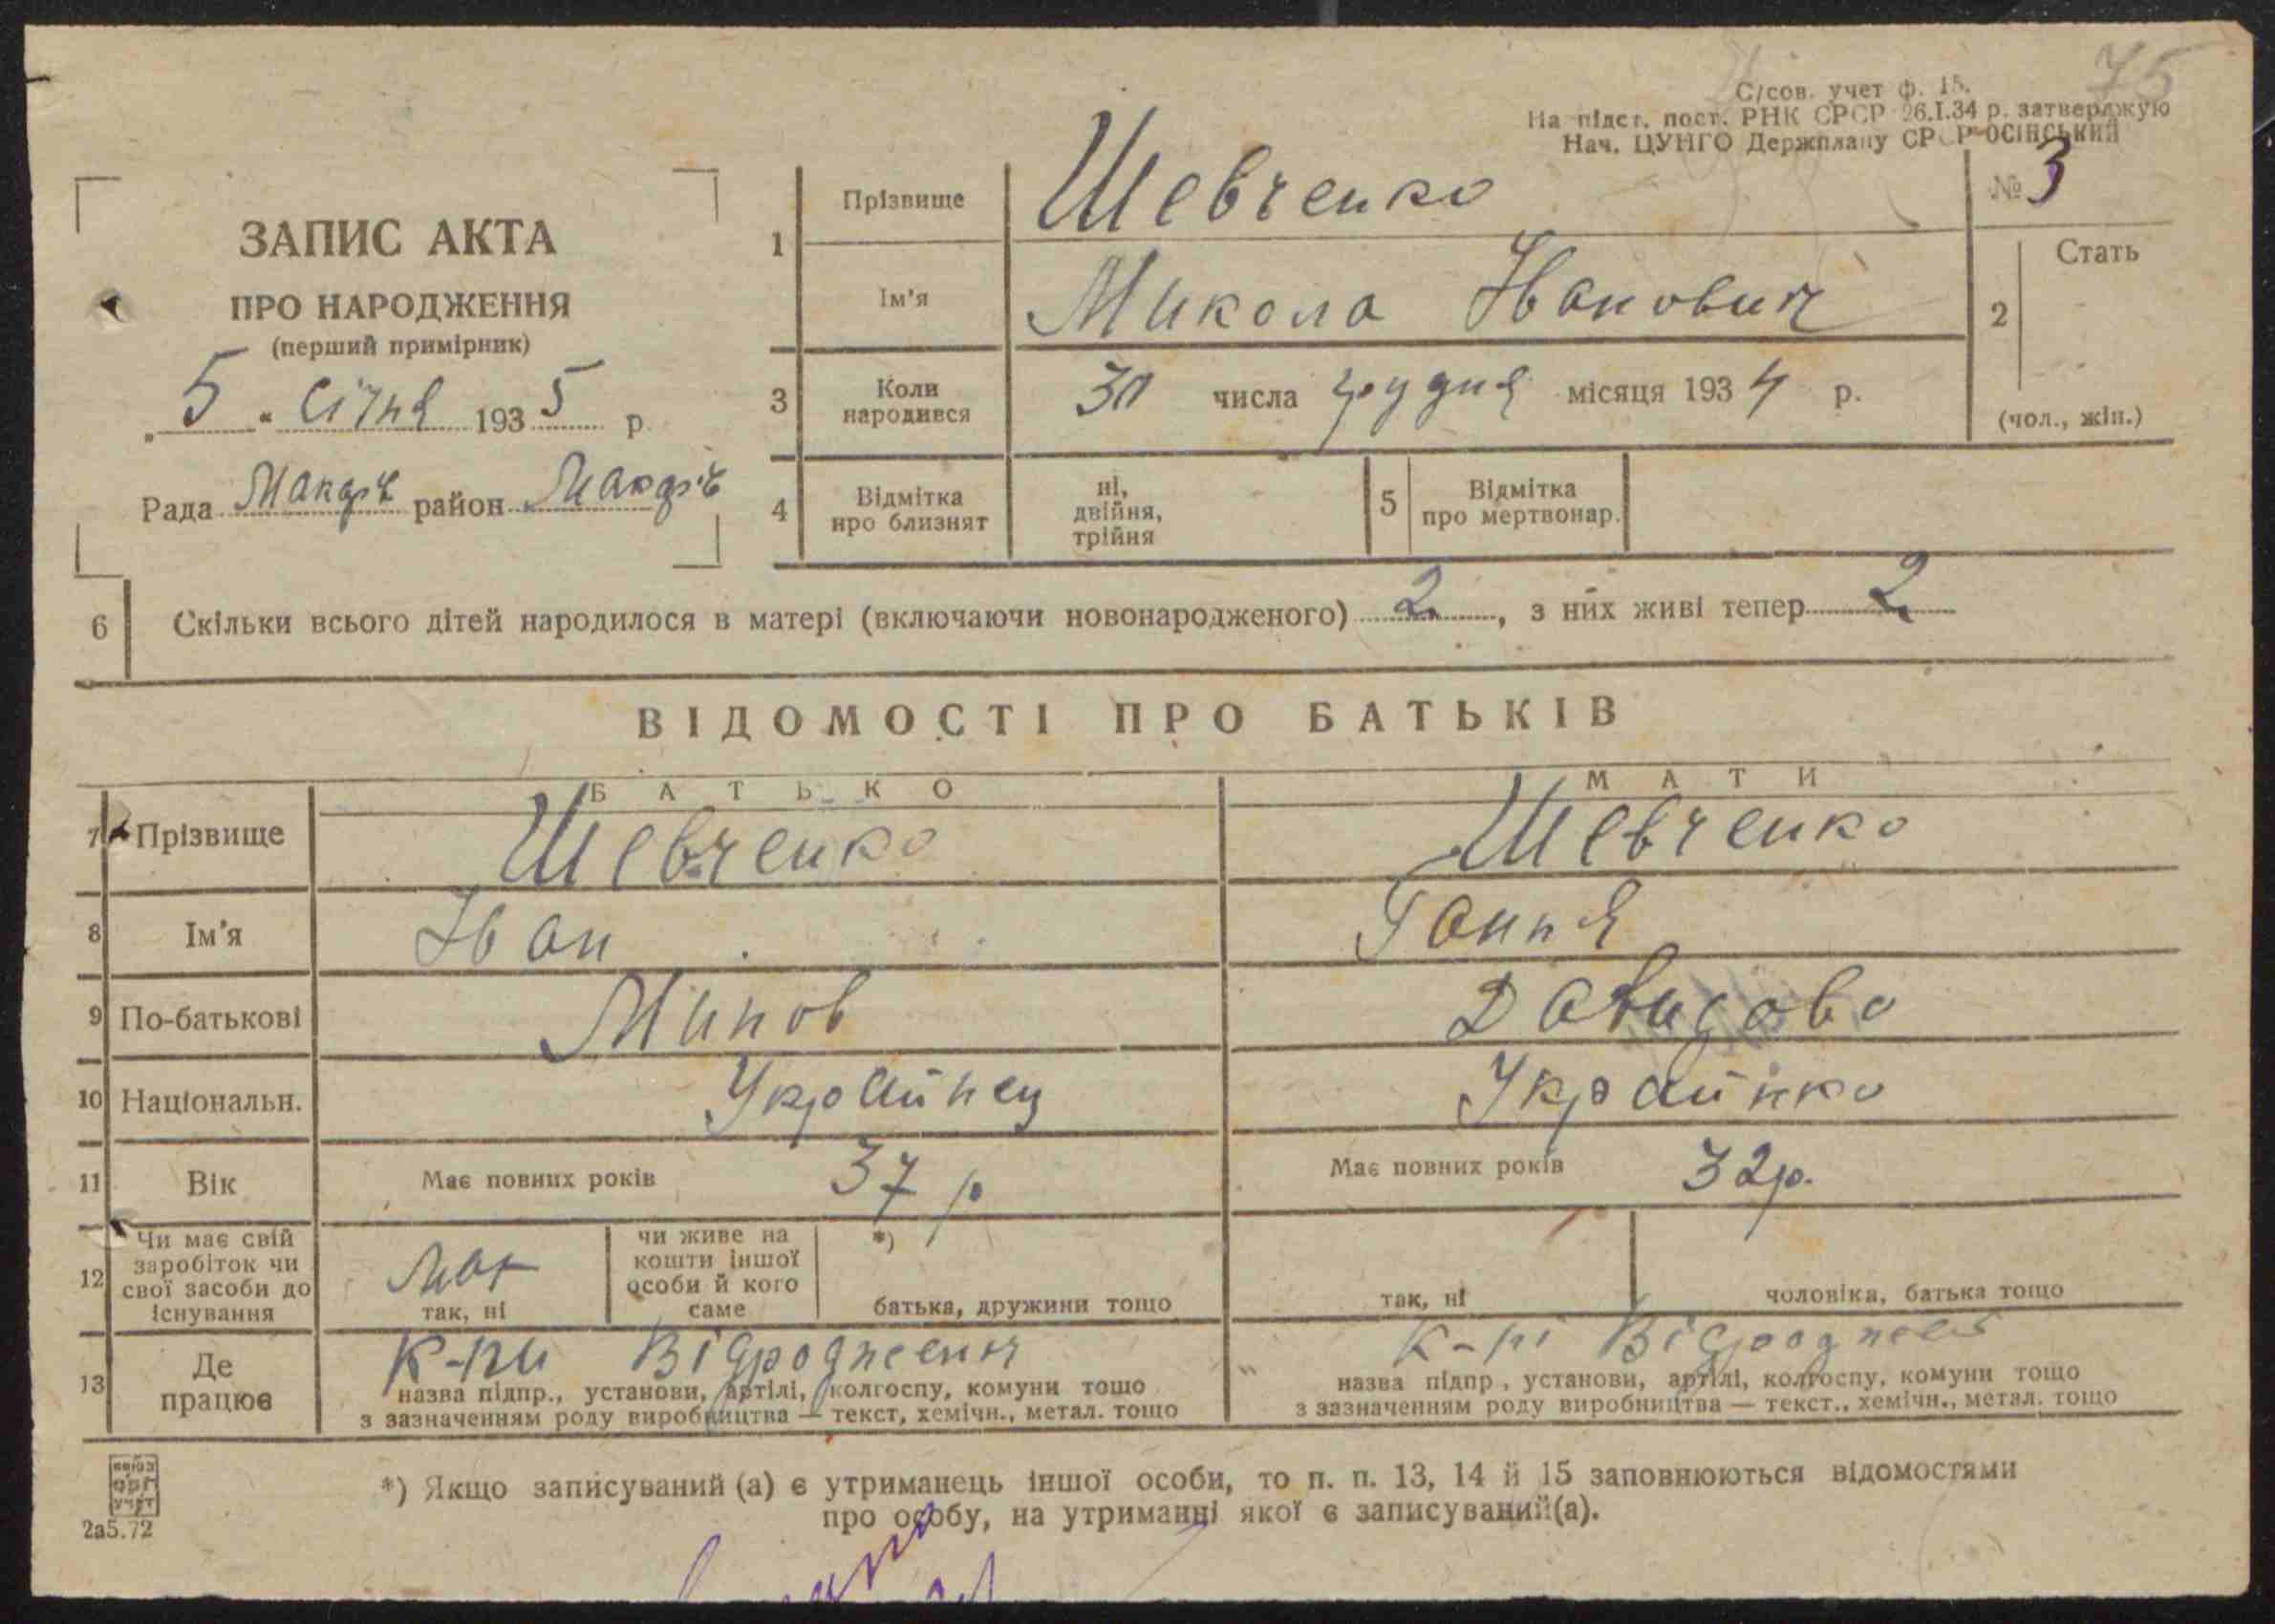 75
С/сов. учет ф. 15.
На підст. пост. РНК СРСР 26.I.34 р. затверджую
Нач. ЦУНГО Держплану СРСР ОСІНСЬКИЙ
ЗАПИС АКТА
ПРО НАРОДЖЕННЯ
(перший примірник)
„5“ Січня 1935 р.
Рада Макарів район Макарів
1 Прізвище Шевченко
№ 3
Ім'я Микола Іванович
2 Стать
(чол., жін.)
3 Коли народився 30 числа грудня місяця 1934 р.
4 Відмітка про близнят ні, двійня, трійня
5 Відмітка про мертвонар.
6 Скільки всього дітей народилося в матері (включаючи новонародженого) 2, з них живі тепер 2
ВІДОМОСТІ ПРО БАТЬКІВ
БАТЬКО МАТИ
7 Прізвище Шевченко Шевченко
8 Ім'я Іван Гання
9 По-батькові Минов Давидова
10 Національн. Українец Українка
11 Вік Має повних років 37 р Має повних років 32р.
12 Чи має свій заробіток чи свої засоби до існування
так, ні
чи живе на кошти іншої особи й кого саме
*)
батька, дружини тощо
так, ні
чоловіка, батька тощо
13 Де працює
Відродження
назва підпр., установи, артілі, колгоспу, комуни тощо
з зазначенням роду виробництва — текст, хемічн., метал. тощо
назва підпр., установи, артілі, колгоспу, комуни тощо
з зазначенням роду виробництва — текст., хемічн., метал. тощо
СОЮЗ
ОРГ
УЧЕТ
2а5.72
*) Якщо записуваний (а) є утриманець іншої особи, то п. п. 13, 14 й 15 заповнюються відомостями
про особу, на утриманні якої є записуваний(а).